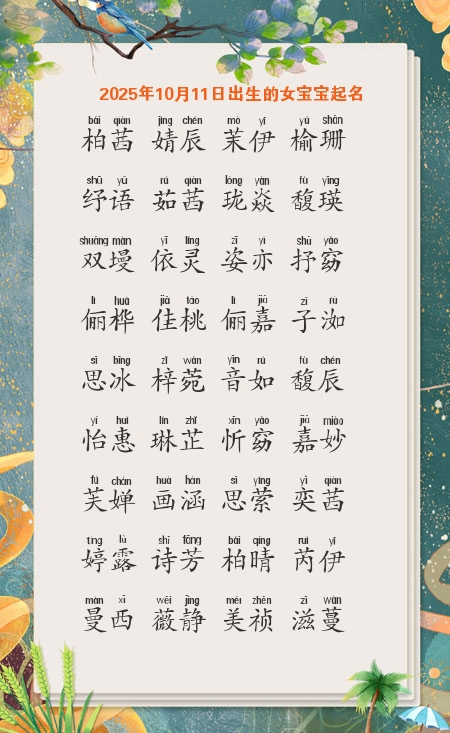 2025年10月11日出生的女宝宝起名
bái qiàn jìng chén mò yī yú shān
柏茜 婧辰 茉伊 榆珊
shū yǔ rú qiàn lóng yàn fù yīng
纾语 茹茜 珑焱 馥瑛
shuāng màn yī líng zī yì shū yǎo
双墁 依灵 姿亦 抒窈
lì huà jiā táo lì jiā zǐ rù
俪桦 佳桃 俪嘉 子洳
sī bīng zǐ wǎn yīn rú fù chén
思冰 梓菀 音如 馥辰
yí huì lín zhǐ xīn yǎo jiā miào
怡惠 琳芷 忻窈 嘉妙
fú chán huà hán sī yíng yì qiàn
芙婵 画涵 思萦 奕茜
tíng lù shī fāng bái qíng ruì yī
婷露 诗芳 柏晴 芮伊
màn xī wēi jìng měi zhēn zī wàn
曼西 薇静 美祯 滋蔓